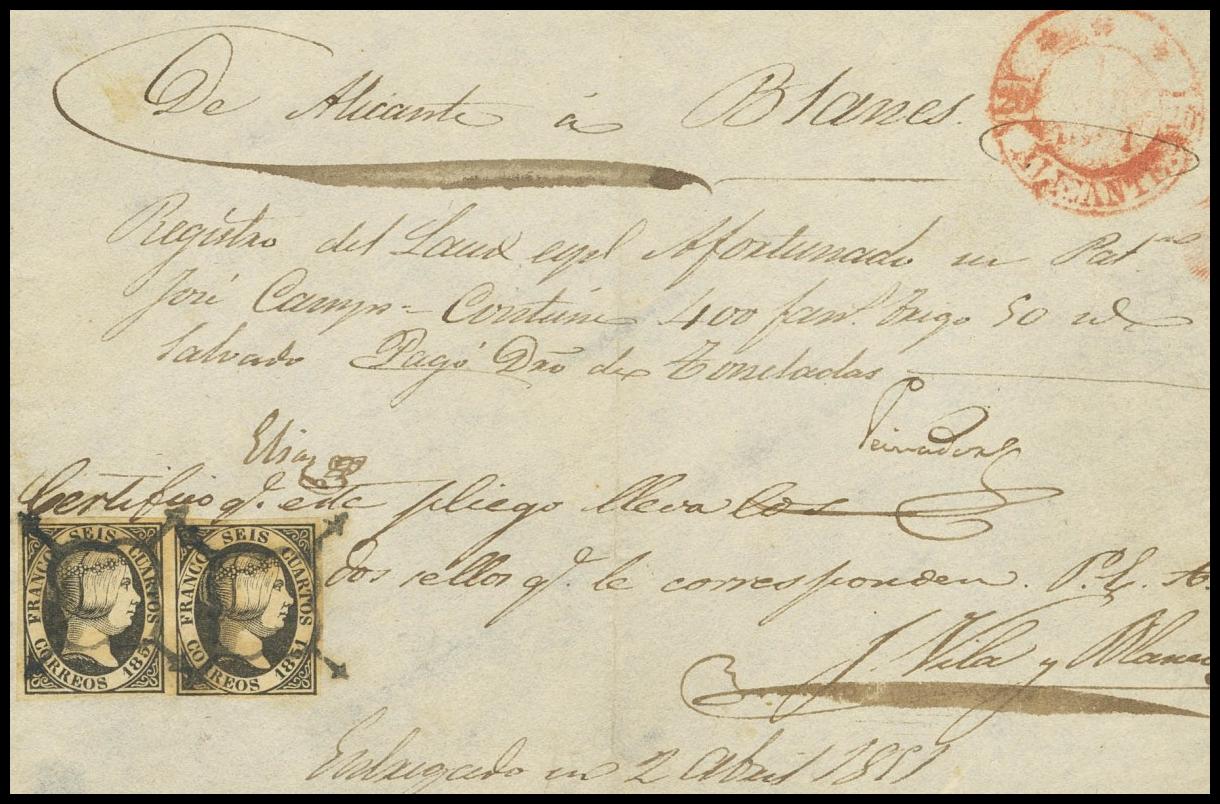 De Alicante á Blanes.
ALICANTE
Registro del Laud espl Afortunado su Patn
José Camps = Contiene 400 fans. trigo 50 id
Salvado Pagó Dro de Toneladas
Elias
Certifico q.e este pliego lleva los
dos sellos q.e le corresponden. P.
J. Vila y Blanco
FRANCO SEIS CUARTOS CORREOS 1851
FRANCO SEIS CUARTOS CORREOS 1851
Entregado en 2 Abril 1851